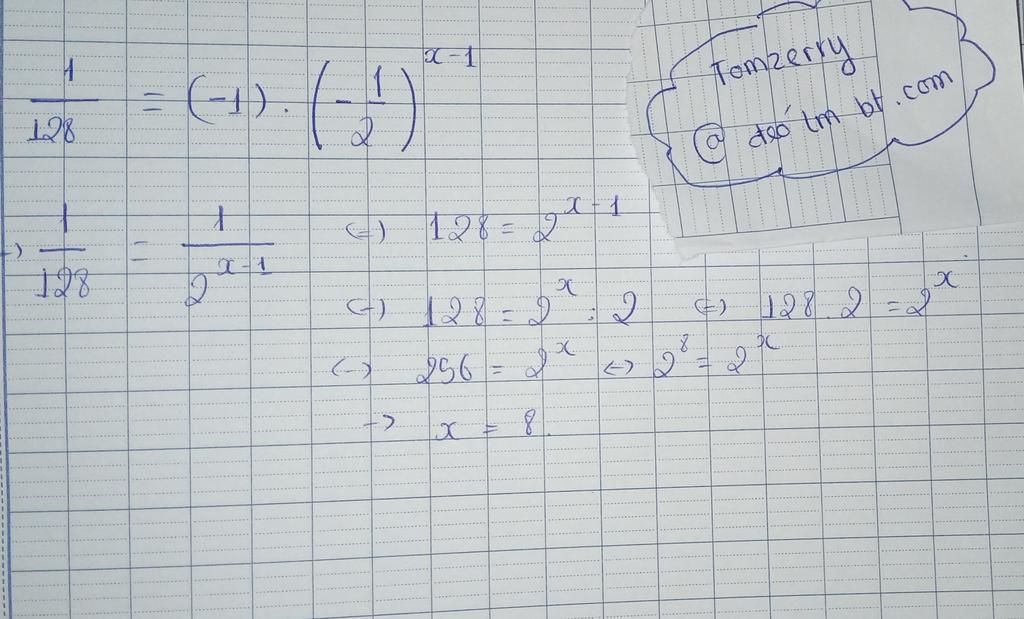 1/128 = (-1) . (-1/2)^(x-1)
Tomzerry
@ deó tm bt.com
→ 1/128 = 1/2^(x-1) (=) 128 = 2^(x-1)
(=) 128 = 2^x : 2 (=) 128 . 2 = 2^x
<-> 256 = 2^x <-> 2^8 = 2^x
-> x = 8.